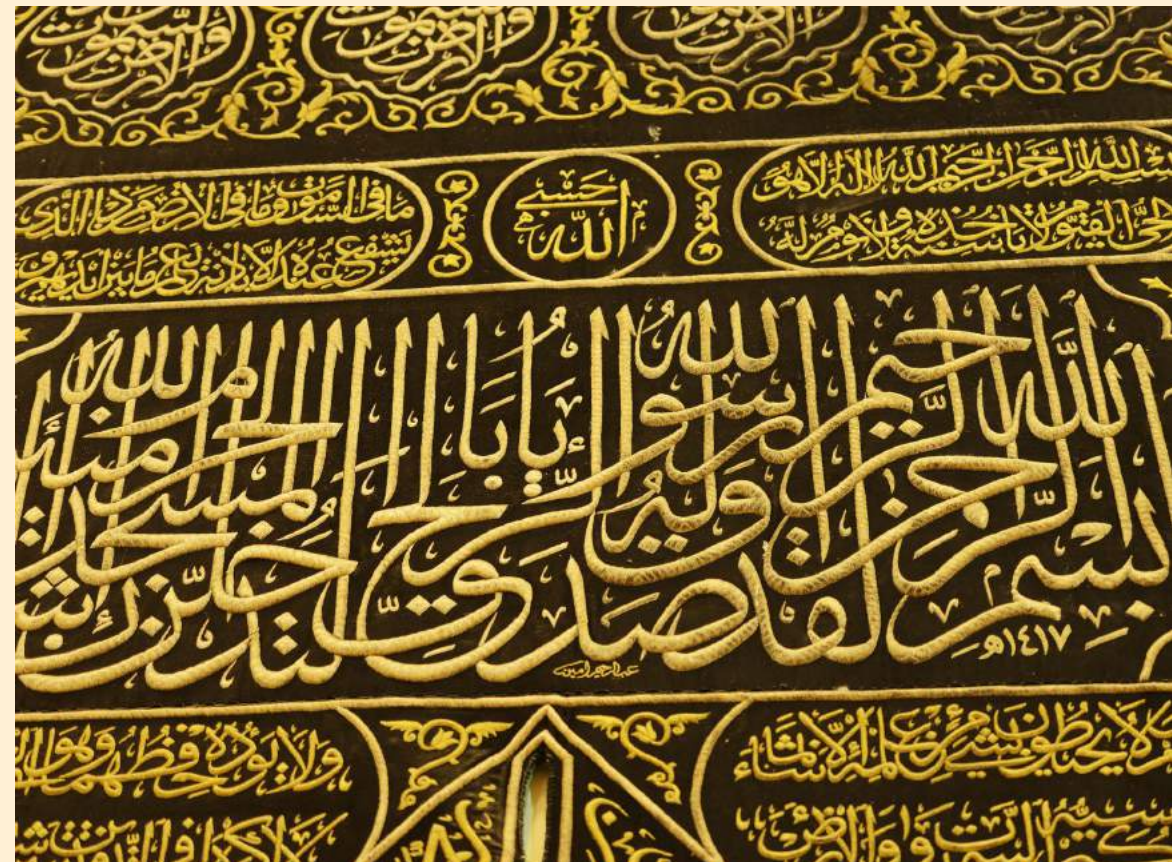 والأرض والأرض والأرض والأرض
بسم الله الرحمن الرحيم الله لا إله إلا هو
الحي القيوم لا تأخذه سنة ولا نوم له
حسبي الله
ما في السموات وما في الأرض من ذا الذي
يشفع عنده إلا بإذنه يعلم ما بين أيديهم و
بسم الله الرحمن الرحيم لقد صدق الله رسوله الرءيا بالحق لتدخلن المسجد الحرام إن شاء الله آمنين
١٤١٧هـ
عبدالرحيم امين
ولا يحيطون بشيء من علمه إلا بما شاء
كرسيه السموات والأرض
ولا يؤده حفظهما وهو
لا إكراه في الدين قد